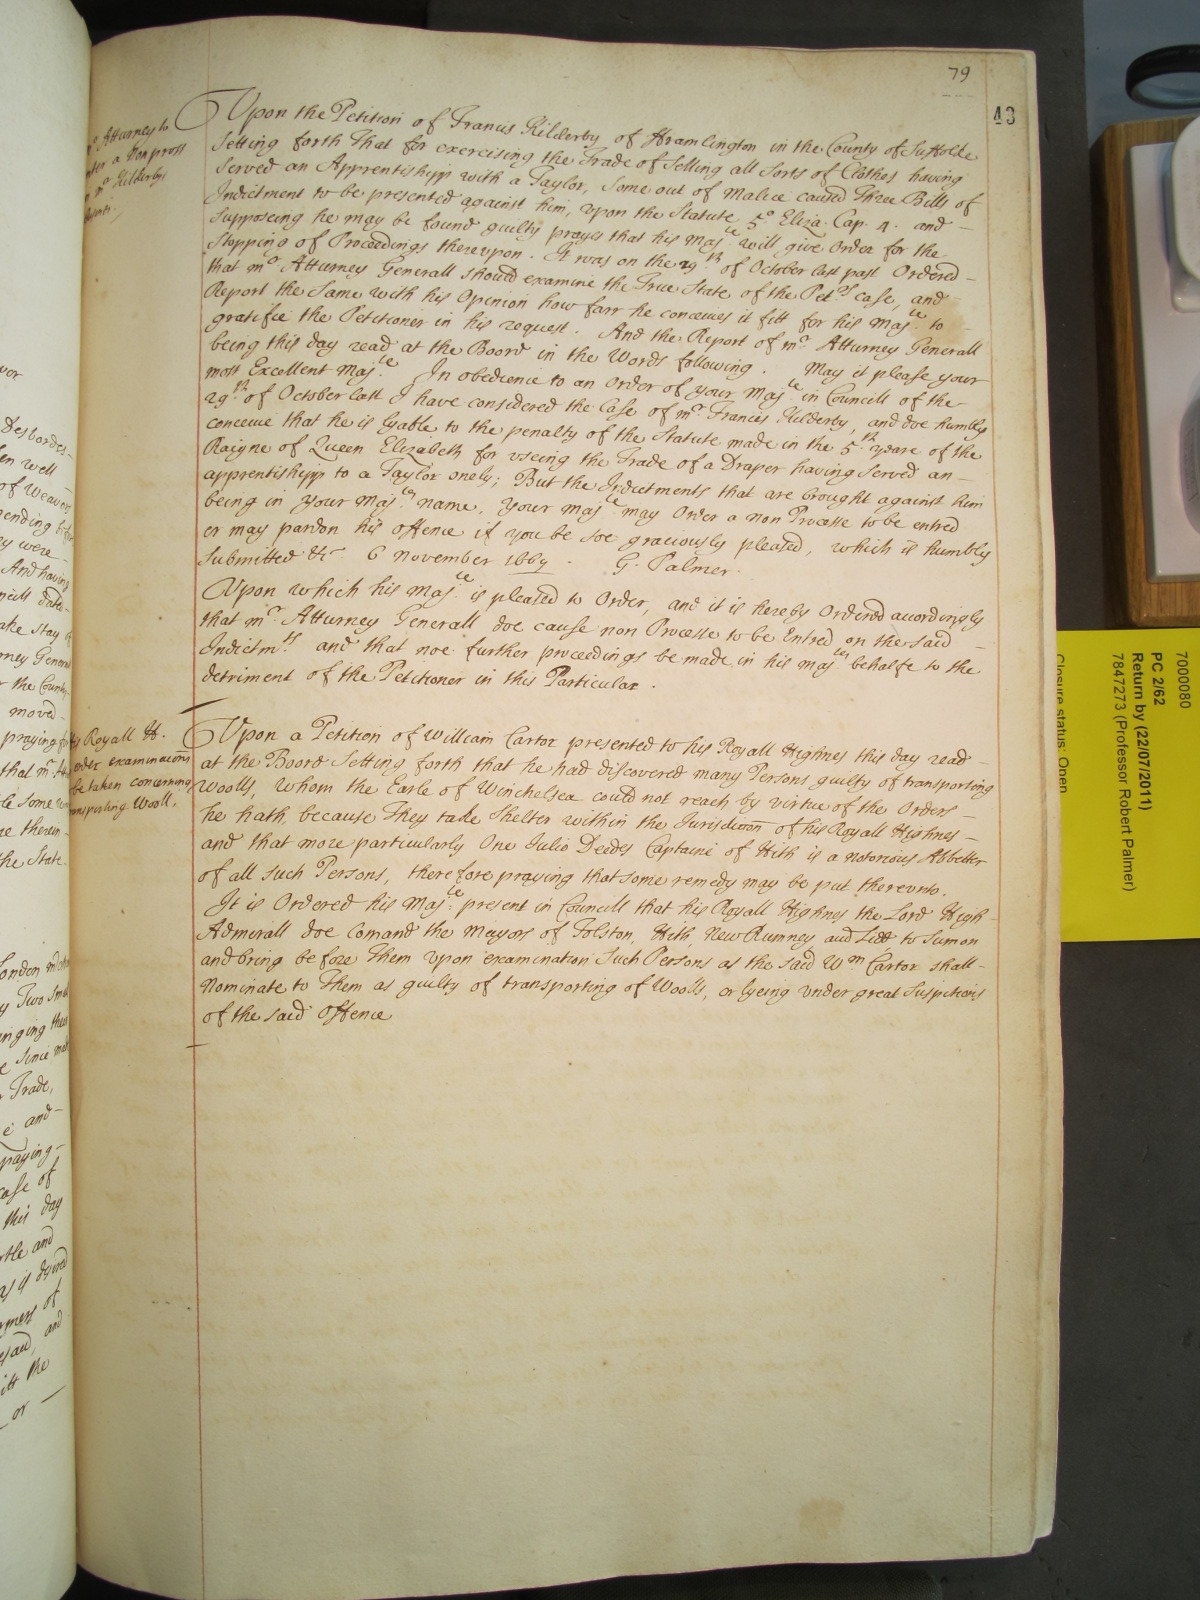 79
43
mr. Attorney to
enter a Non pross
mr. Kilderby
Upon the Petition of Francis Kilderby of Framlington in the County of Suffolke
Setting forth That for exercising the Trade of Selling all Sorts of Clothes having
Served an Apprentishipp with a Taylor, Some out of Malice caused Three Bills of
Indictment to be presented against him, upon the Statute 5o Eliza. Cap. 4. and –
Supposing he may be found guilty prayes that his Maj.tie will give Order for the
Stopping of Proceedings thereupon. It was on the 29.th of October last past Ordered –
that mr. Atturney Generall should examine the True State of the Pet.rs case, and
Report the Same with his Opinion how farr he conceives it fitt for his Maj.tie to –
gratifie the Petitioner in his request. And the Report of mr. Atturney Generall
being this day read at the Boord in the Words following. May it please your
most Excellent Maj.tie In obedience to an Order of your Maj.tie in Councill of the
29.th of October last I have considered the Case of mr. Francis Kilderby, and doe humbly
conceive that he is lyable to the penalty of the Statute made in the 5.th yeare of the
Raigne of Queen Elizabeth for useing the Trade of a Draper having Served an –
apprentishipp to a Taylor onely; But the Indictments that are brought against him
being in your Maj.ties name, your Maj.tie may Order a non Processe to be entred
or may pardon his offence if you be soe graciously pleased, which is humbly
Submitted &c. 6 November 1669. G. Palmer.
Upon which his Maj.tie is pleased to Order, and it is hereby Ordered accordingly
that mr. Atturney Generall doe cause non Processe to be Entred on the said –
Indictm.ts and that noe further proceedings be made in his Maj.ties behalfe to the
detriment of the Petitioner in this Particular.
His Royall H.
order examinations
be taken concerning
transporting Wooll.
Upon a Petition of William Carter presented to his Royall Highnes this day read –
at the Boord Setting forth that he had discovered many Persons guilty of transporting
Woolls, whom the Earle of Winchelsea could not reach by virtue of the Orders –
he hath, because They take Shelter within the Jurisdicon of his Royall Highnes –
and that more particularly One Julio Deedes Captaine of Hith is a notorious Abbetter
of all such Persons, therefore praying that some remedy may be put thereunto.
It is Ordered his Maj.tie present in Councill that his Royall Highnes the Lord High –
Admirall doe comand the Mayors of Folston, Hith, New Rumney and Lidd to Sumon
and bring before Them upon examination Such Persons as the said Wm Carter shall –
Nominate to Them as guilty of transporting of Woolls, or lyeing under great Suspitions
of the said Offence
7000080
PC 2/62
Return by (22/07/2011)
7847273 (Professor Robert Palmer)
Closure status: Open